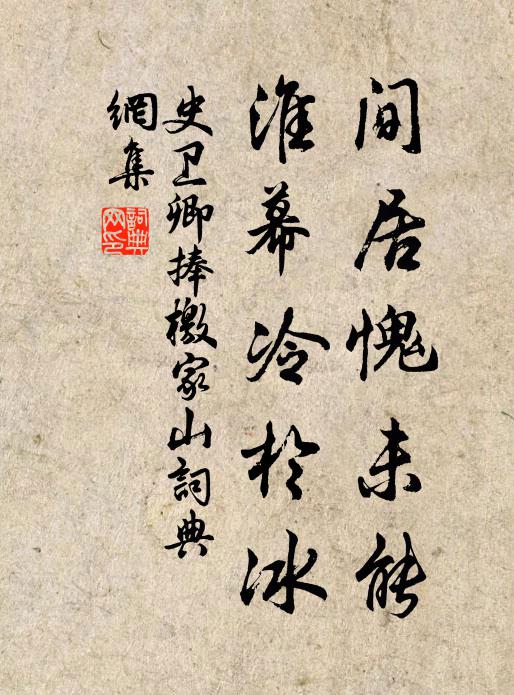 间居愧未能
淮幕冷於冰
史卫卿捧檄家山詞典
網集
詞典網印